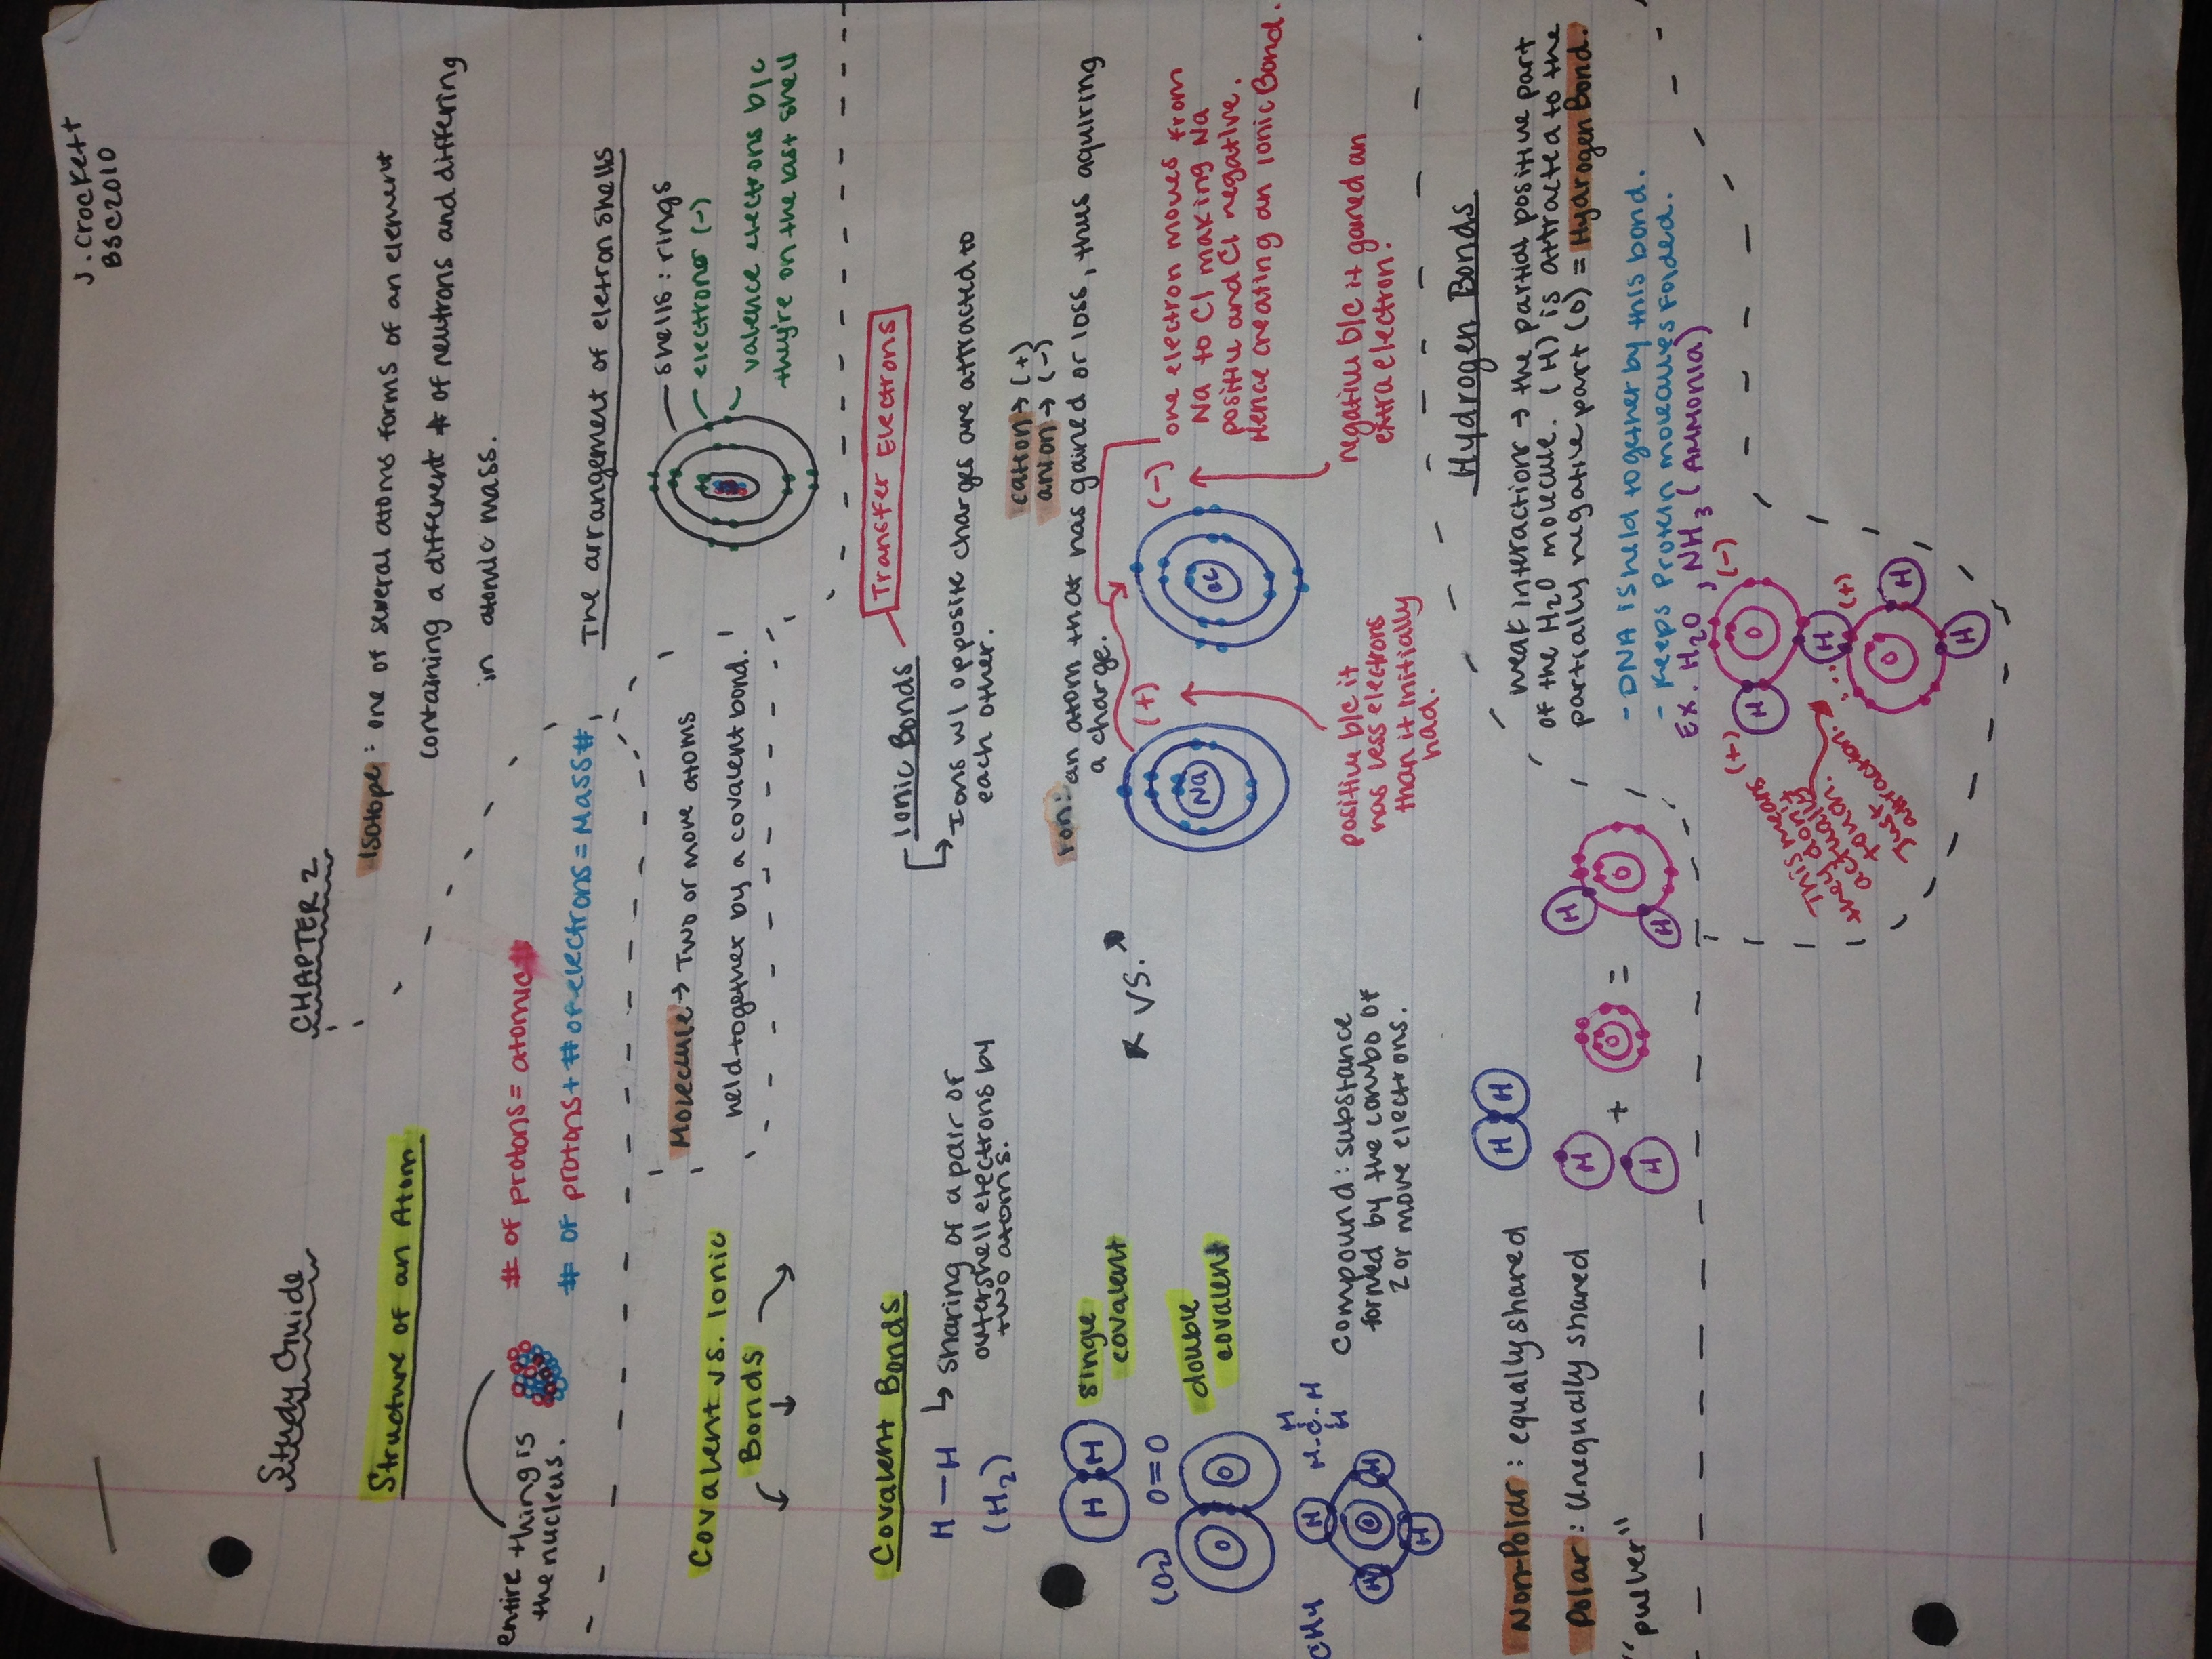 J. Crockett
BSC2010
Study Guide
CHAPTER 2
Structure of an Atom
entire thing is
the nucleus.
# of protons = atomic #
# of protons + # of electrons = Mass #
Isotope: one of several atoms forms of an element
containing a different # of neutrons and differing
in atomic mass.
The arrangement of eletron shells
shells: rings
electrons (-)
valence electrons b/c
they're on the last shell
Covalent vs. Ionic
Bonds
Molecule → Two or more atoms
held together by a covalent bond.
Covalent Bonds
H — H
(H2)
↳ sharing of a pair of
outershell electrons by
two atoms.
H H
single
covalent
(O2) O=O
O O
double
covalent
CH4
H
H-C-H
H
H H H H
Compound: substance
formed by the combo of
2 or more electrons.
VS.
Ionic Bonds
Transfer Electrons
↳ Ions w/ opposite charges are attracted to
each other.
cation → (+)
anion → (-)
Ion: an atom that has gained or loss, thus aquiring
a charge.
Na (+)
Cl (-)
one electron moves from
Na to Cl making Na
positive and Cl negative.
Hence creating an Ionic Bond.
positive b/c it
has less electrons
than it initially
had.
negative b/c it gained an
extra electron.
Non-Polar: equally shared
H H
Polar: Unequally shared
"pulver"
H H + O = H O H
Hydrogen Bonds
weak interactions → the partial positive part
of the H2O molecule. (H) is attracted to the
partially negative part (O) = Hydrogen Bond.
- DNA is held together by this bond.
- Keeps Protein molecules Folded.
Ex. H2O, NH3 (AMMONIA)
(+) H O (-)
H (+)
O H
H
This means
they don't
actually
touch.
Just
attraction.